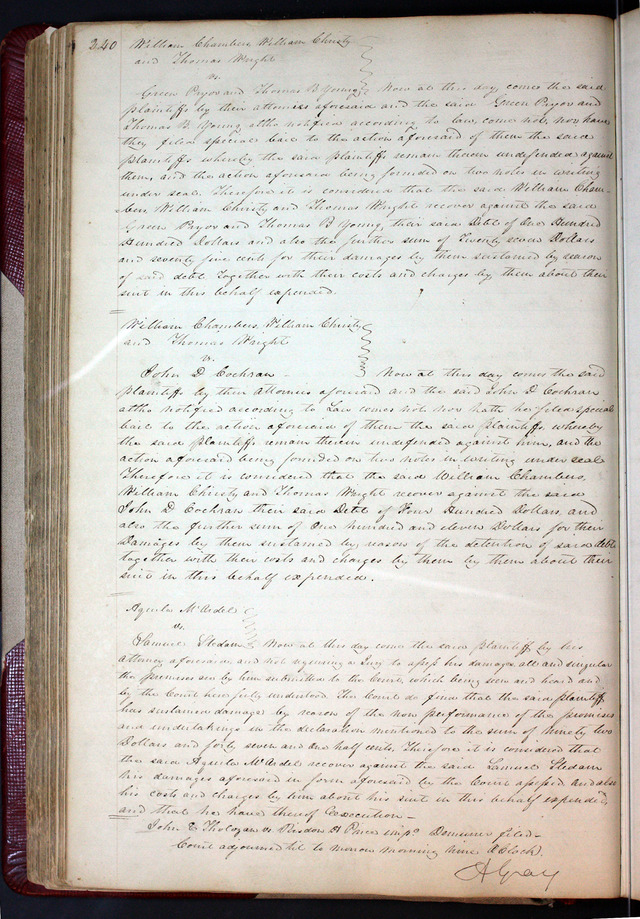 240 William Chambers William Christy
and Thomas Wright
vs.
Green Pryor and Thomas B Young Now at this day comes the said
plaintiffs by their attornies aforesaid and the said Green Pryor and
Thomas B. Young altho notified according to law come not, nor have
they filed special bail to the action aforesaid of them the said
plaintiffs whereby the said plaintiffs remain therein undefended against
them, and the action aforesaid being founded on two notes in writing
under seal. Therefore it is considered that the said William Cham-
bers, William Christy and Thomas Wright recover against the said
Green Pryor and Thomas B Young, their said Debt of One Hundred
Hundred Dollars and also the further sum of Twenty seven Dollars
and seventy five cents for their damages by them sustained by reason
of said debt. Together with their costs and charges by them about their
suit in this behalf expended.
William Chambers, William Christy
and Thomas Wright
vs.
John D Cochran - Now at this day comes the said
plaintiffs by their Attornies aforesaid and the said John D Cochran
altho notified according to Law comes not, nor hath he filed special
bail to the action aforesaid of them the said plaintiffs whereby
the said plaintiffs remain therein undefended against him, and the
action aforesaid being founded on two notes in writing under seal
Therefore it is considered that the said William Chambers,
William Christy and Thomas Wright recover against the said
John D. Cochran their said Debt of Four Hundred Dollars, and
also the further sum of One hundred and eleven Dollars for their
Damages by them sustained by reason of the detention of said debt
together with their costs and charges by them by them about their
suit in this behalf expended.
Aquila McArdel
vs.
Samuel Sledam Now at this day comes the said plaintiff by his
attorney aforesaid and not requiring a Jury to assess his damages all and singular
the premises are by him submitted to the Court, which being seen and heard and
by the Court here fully understood. The Court do find that the said plaintiff
has sustained damages by reason of the non performance of the promises
and undertakings in the declaration mentioned to the sum of ninety two
Dollars and forty seven and one half cents. Therefore it is considered that
the said Aquila McArdel recover against the said Samuel Sledam
his damages aforesaid in form aforesaid by the Court assessed and also
his costs and charges by him about his suit in this behalf expended,
and that he have thereof execution -
John E Tholozan vs Risdon H Price Demurrer filed -
Court adjourned til to morrow morning nine OClock.
A Gray